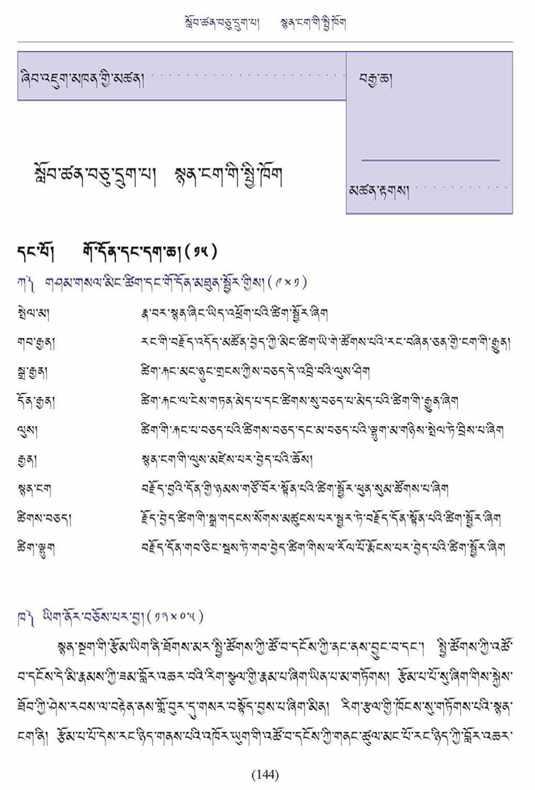 སློབ་ཚན་བཅུ་དྲུག་པ།    སྙན་ངག་གི་སྤྱི་ཁོག
ཞིབ་འཇུག་མཁན་གྱི་མཚན།
བརྒྱ་ཆ།
མཚན་རྟགས།
སློབ་ཚན་བཅུ་དྲུག་པ།    སྙན་ངག་གི་སྤྱི་ཁོག
དང་པོ།    གོ་དོན་དང་དག་ཆ། (༡༥)
ཀ༽ གཤམ་གསལ་མིང་ཚིག་དང་གོ་དོན་མཐུན་སྦྱོར་གྱིས། (༩×༡)
སྤེལ་མ།    རྣ་བར་སྙན་ཞིང་ཡིད་འཕྲོག་པའི་ཚིག་སྦྱོར་ཞིག
གབ་རྒྱན།    རང་གི་བརྗོད་འདོད་མཚོན་བྱེད་ཀྱི་མིང་ཚིག་ཡི་གེ་ཚོགས་པའི་རང་བཞིན་ཅན་གྱི་ངག་གི་རྒྱུན།
སྒྲ་རྒྱན།    ཚིག་རྐང་མང་ཉུང་གྲངས་ཀྱིས་བཅད་དེ་འབྲི་བའི་ལུས་ཤིག
དོན་རྒྱན།    ཚིག་རྐང་ལ་ངེས་གཏན་མེད་པ་དང་ཚིགས་སུ་བཅད་པ་མེད་པའི་ཚིག་གི་རྒྱུན་ཞིག
ལུས།    ཚིག་གི་རྐང་པ་བཅད་པའི་ཚིགས་བཅད་དང་མ་བཅད་པའི་ལྷུག་མ་གཉིས་སྤེལ་ཏེ་བྲིས་པ་ཞིག
རྒྱན།    སྙན་ངག་གི་ལུས་མཛེས་པར་བྱེད་པའི་ཆོས།
སྙན་ངག    བརྗོད་བྱའི་དོན་གྱི་ཉམས་གཙོ་བོར་སྟོན་པའི་ཚིག་སྦྱོར་ཕུན་སུམ་ཚོགས་པ་ཞིག
ཚིགས་བཅད།    རྗོད་བྱེད་ཚིག་གི་སྒྲ་གདངས་སོགས་མཚུངས་པར་སྦྱར་ཏེ་བརྗོད་དོན་སྟོན་པའི་ཚིག་སྦྱོར་ཞིག
ཚིག་ལྷུག    བརྗོད་དོན་གབ་ཅིང་སྦས་ཏེ་གབ་བྱེད་ཚིག་གིས་ཕ་རོལ་པོ་རྨོངས་པར་བྱེད་པའི་ཚིག་སྦྱོར་ཞིག
ཁ༽ ཡིག་ནོར་བཅོས་པར་བྱ། (༡༢×༠༥)
སྙན་སྔག་གི་རྩོམ་ཡིག་ནི་ཐོགས་མར་སྤྱི་ཚོགས་ཀྱི་ཚོ་བ་དངོས་ཀྱི་ནང་ནས་བྱུང་བ་དང་།  སྤྱི་ཚོགས་ཀྱི་འཚོ་
བ་དངོས་དེ་མི་རྣམས་ཀྱི་ཟམ་བློར་འཆར་བའི་རིག་སྩལ་གྱི་རྣམ་པ་ཞིག་ཡིན་པ་མ་གཏོགས།  རྩོམ་པ་པོ་སུ་ཞིག་གིས་སྐྱེས་
ཐོབ་ཀྱི་ཤེས་རབས་ལ་བརྟེན་ནས་གློ་བུར་དུ་གསར་བསྟོད་བྱས་པ་ཞིག་མིན།  རིག་རྩལ་གྱི་ཁོངས་སུ་གཏོགས་པའི་སྙན་
ངག་ནི།  རྩོམ་པ་པོ་དེས་རང་ཉིད་གནས་པའི་འཁོར་ཡུག་གི་འཚོ་བ་དངོས་ཀྱི་གནང་ཚུལ་མང་པོ་རང་ཉིད་ཀྱི་བློར་འཆར་
(144)